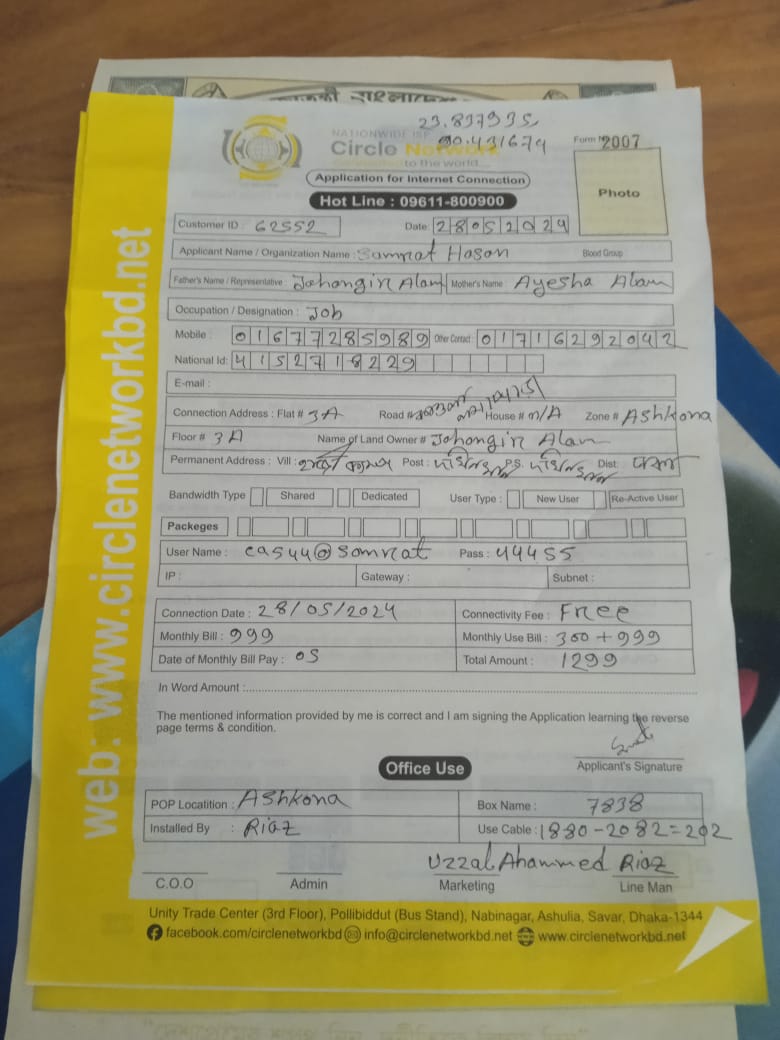 23.837335
90.431674
NATIONWIDE ISP
Circle Network
Connected to the world...
Form № 2007
Application for Internet Connection
Hot Line : 09611-800900
Photo
Customer ID : 62552 Date: 28052024
Applicant Name / Organization Name : Samrat Hasan Blood Group
Father's Name / Representative : Jahangir Alam Mother's Name : Ayesha Alam
Occupation / Designation : Job
Mobile : 01677285989 Other Contact : 01716292042
National Id: 4152718229
E-mail :
Connection Address : Flat # 3A Road # House # n/A Zone # Ashkona
Floor # 3A Name of Land Owner # Jahangir Alam
Permanent Address : Vill : Post : দক্ষিনখান P.S. দক্ষিনখান Dist : ঢাকা
Bandwidth Type Shared Dedicated User Type : New User Re-Active User
Packeges
User Name : ca544@somrat Pass : 44455
IP : Gateway : Subnet :
Connection Date : 28/05/2024 Connectivity Fee : Free
Monthly Bill : 999 Monthly Use Bill : 300 + 999
Date of Monthly Bill Pay : 05 Total Amount : 1299
In Word Amount :
The mentioned information provided by me is correct and I am signing the Application learning the reverse
page terms & condition.
Applicant's Signature
Office Use
POP Locatition : Ashkona Box Name : 7838
Installed By : Riaz Use Cable : 1880-2082=202
Uzzal Ahammed Riaz
C.O.O Admin Marketing Line Man
Unity Trade Center (3rd Floor), Pollibiddut (Bus Stand), Nabinagar, Ashulia, Savar, Dhaka-1344
facebook.com/circlenetworkbd info@circlenetworkbd.net www.circlenetworkbd.net
web: www.circlenetworkbd.net